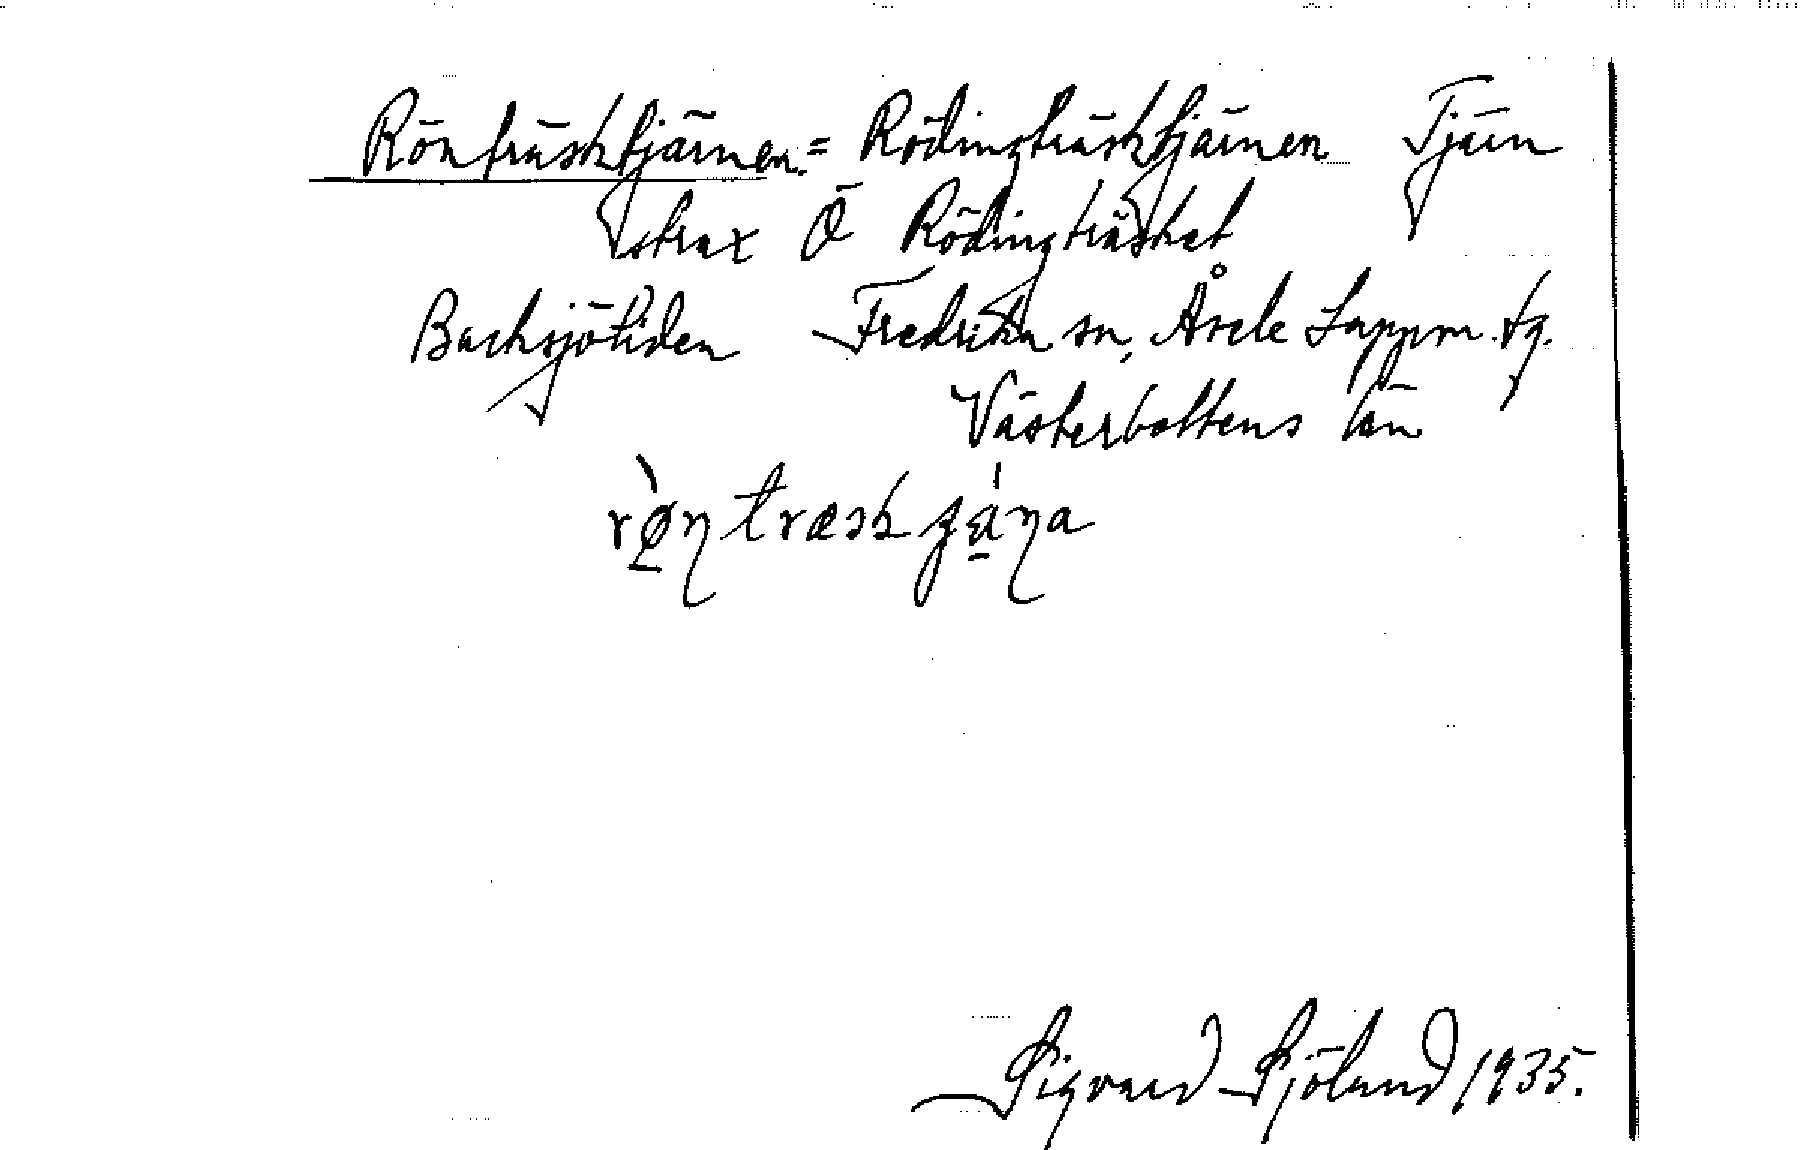 Rönträsktjärnen = Rödingträsktjärnen Tjärn
strax Ö Rödingträsket
Backsjöliden Fredrika sn, Åsele Lappm. tg.
Västerbottens län
rø̀̄ŋtræskʒá̱ŋa
Sigvard Sjölund 1935.